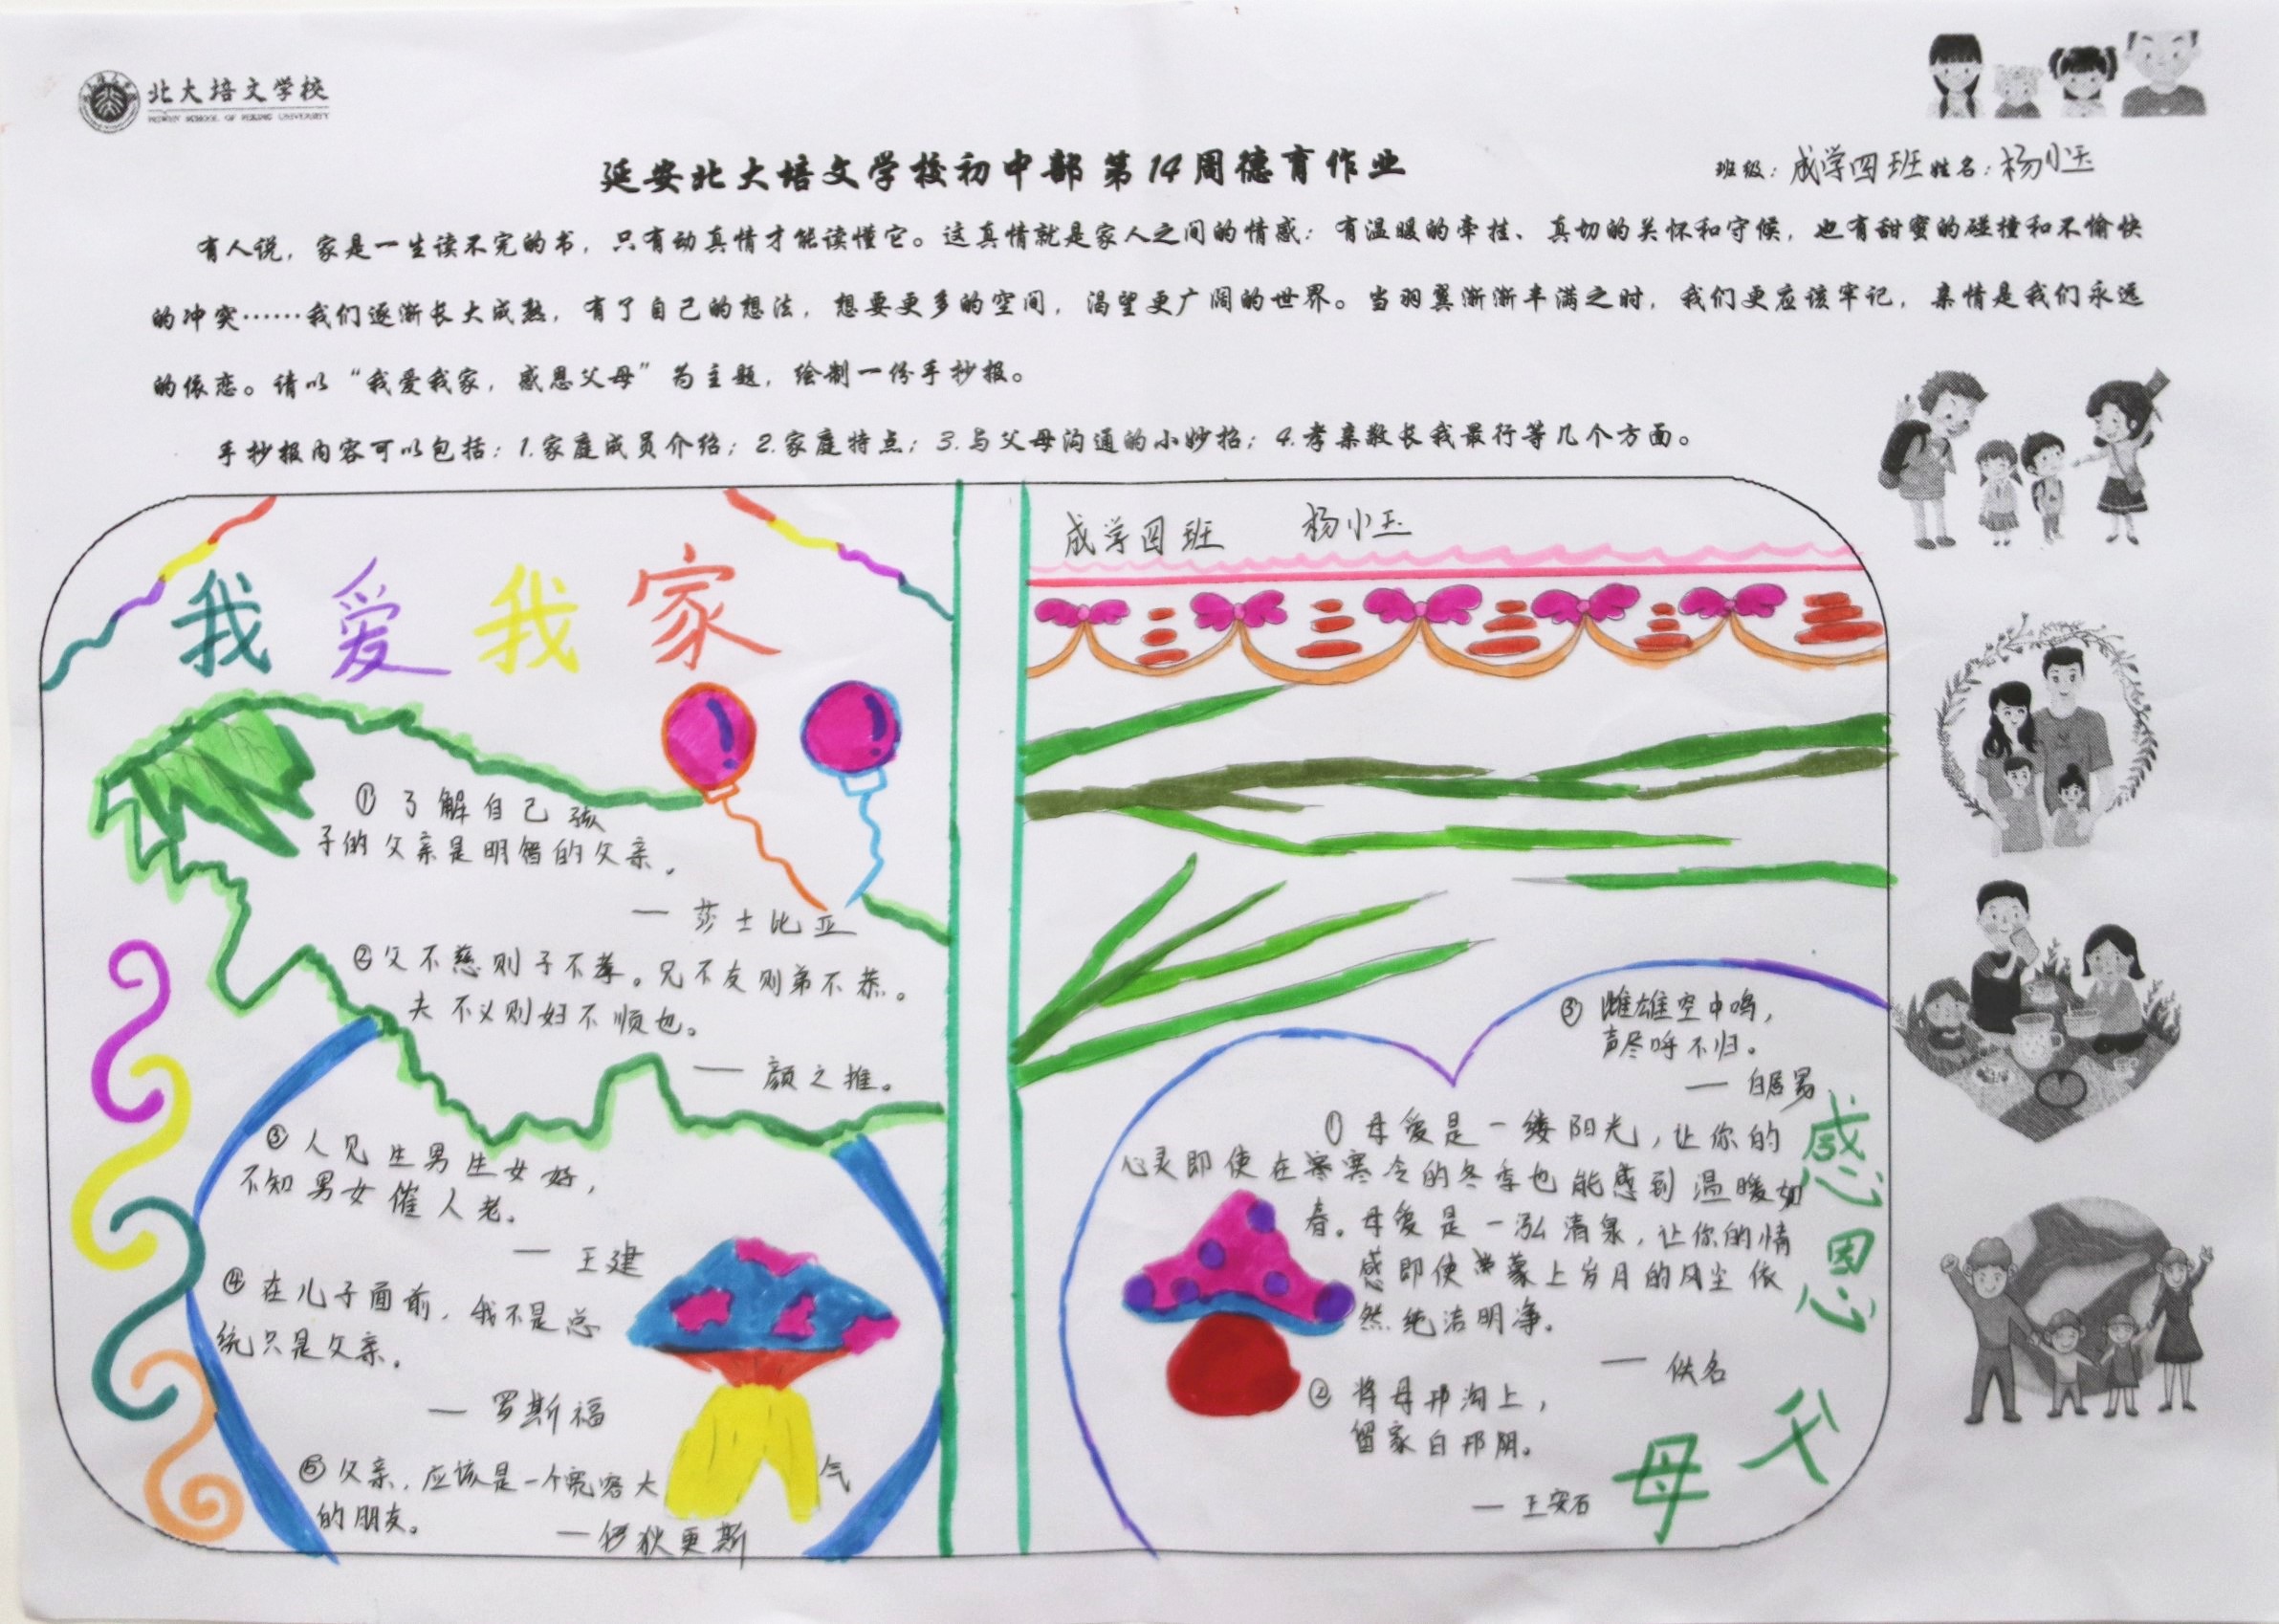 北大培文学校
PEIWEN SCHOOL OF PEKING UNIVERSITY
延安北大培文学校初中部第14周德育作业
班级：成学四班 姓名：杨小玉
有人说，家是一生读不完的书，只有动真情才能读懂它。这真情就是家人之间的情感：有温暖的牵挂、真切的关怀和守候，也有甜蜜的碰撞和不愉快
的冲突……我们逐渐长大成熟，有了自己的想法，想要更多的空间，渴望更广阔的世界。当羽翼渐渐丰满之时，我们更应该牢记，亲情是我们永远
的依恋。请以“我爱我家，感恩父母”为主题，绘制一份手抄报。
手抄报内容可以包括：1.家庭成员介绍；2.家庭特点；3.与父母沟通的小妙招；4.孝亲敬长我最行等几个方面。
我爱我家
①了解自己孩
子的父亲是明智的父亲。
— 莎士比亚
②父不慈则子不孝。兄不友则弟不恭。
夫不义则妇不顺也。
— 颜之推。
③人见生男生女好，
不知男女催人老。
— 王建
④在儿子面前，我不是总
统只是父亲。
— 罗斯福
⑤父亲，应该是一个宽容大气
的朋友。
—何狄更斯
成学四班 杨小玉
③雌雄空中鸣，
声尽呼不归。
— 白居易
①母爱是一缕阳光，让你的
心灵即使在寒冷的冬季也能感到温暖如
春。母爱是一泓清泉，让你的情
感即使蒙上岁月的风尘依
然纯洁明净。
— 佚名
②将母邗沟上，
留家白邗阴。
— 王安石
感恩父母